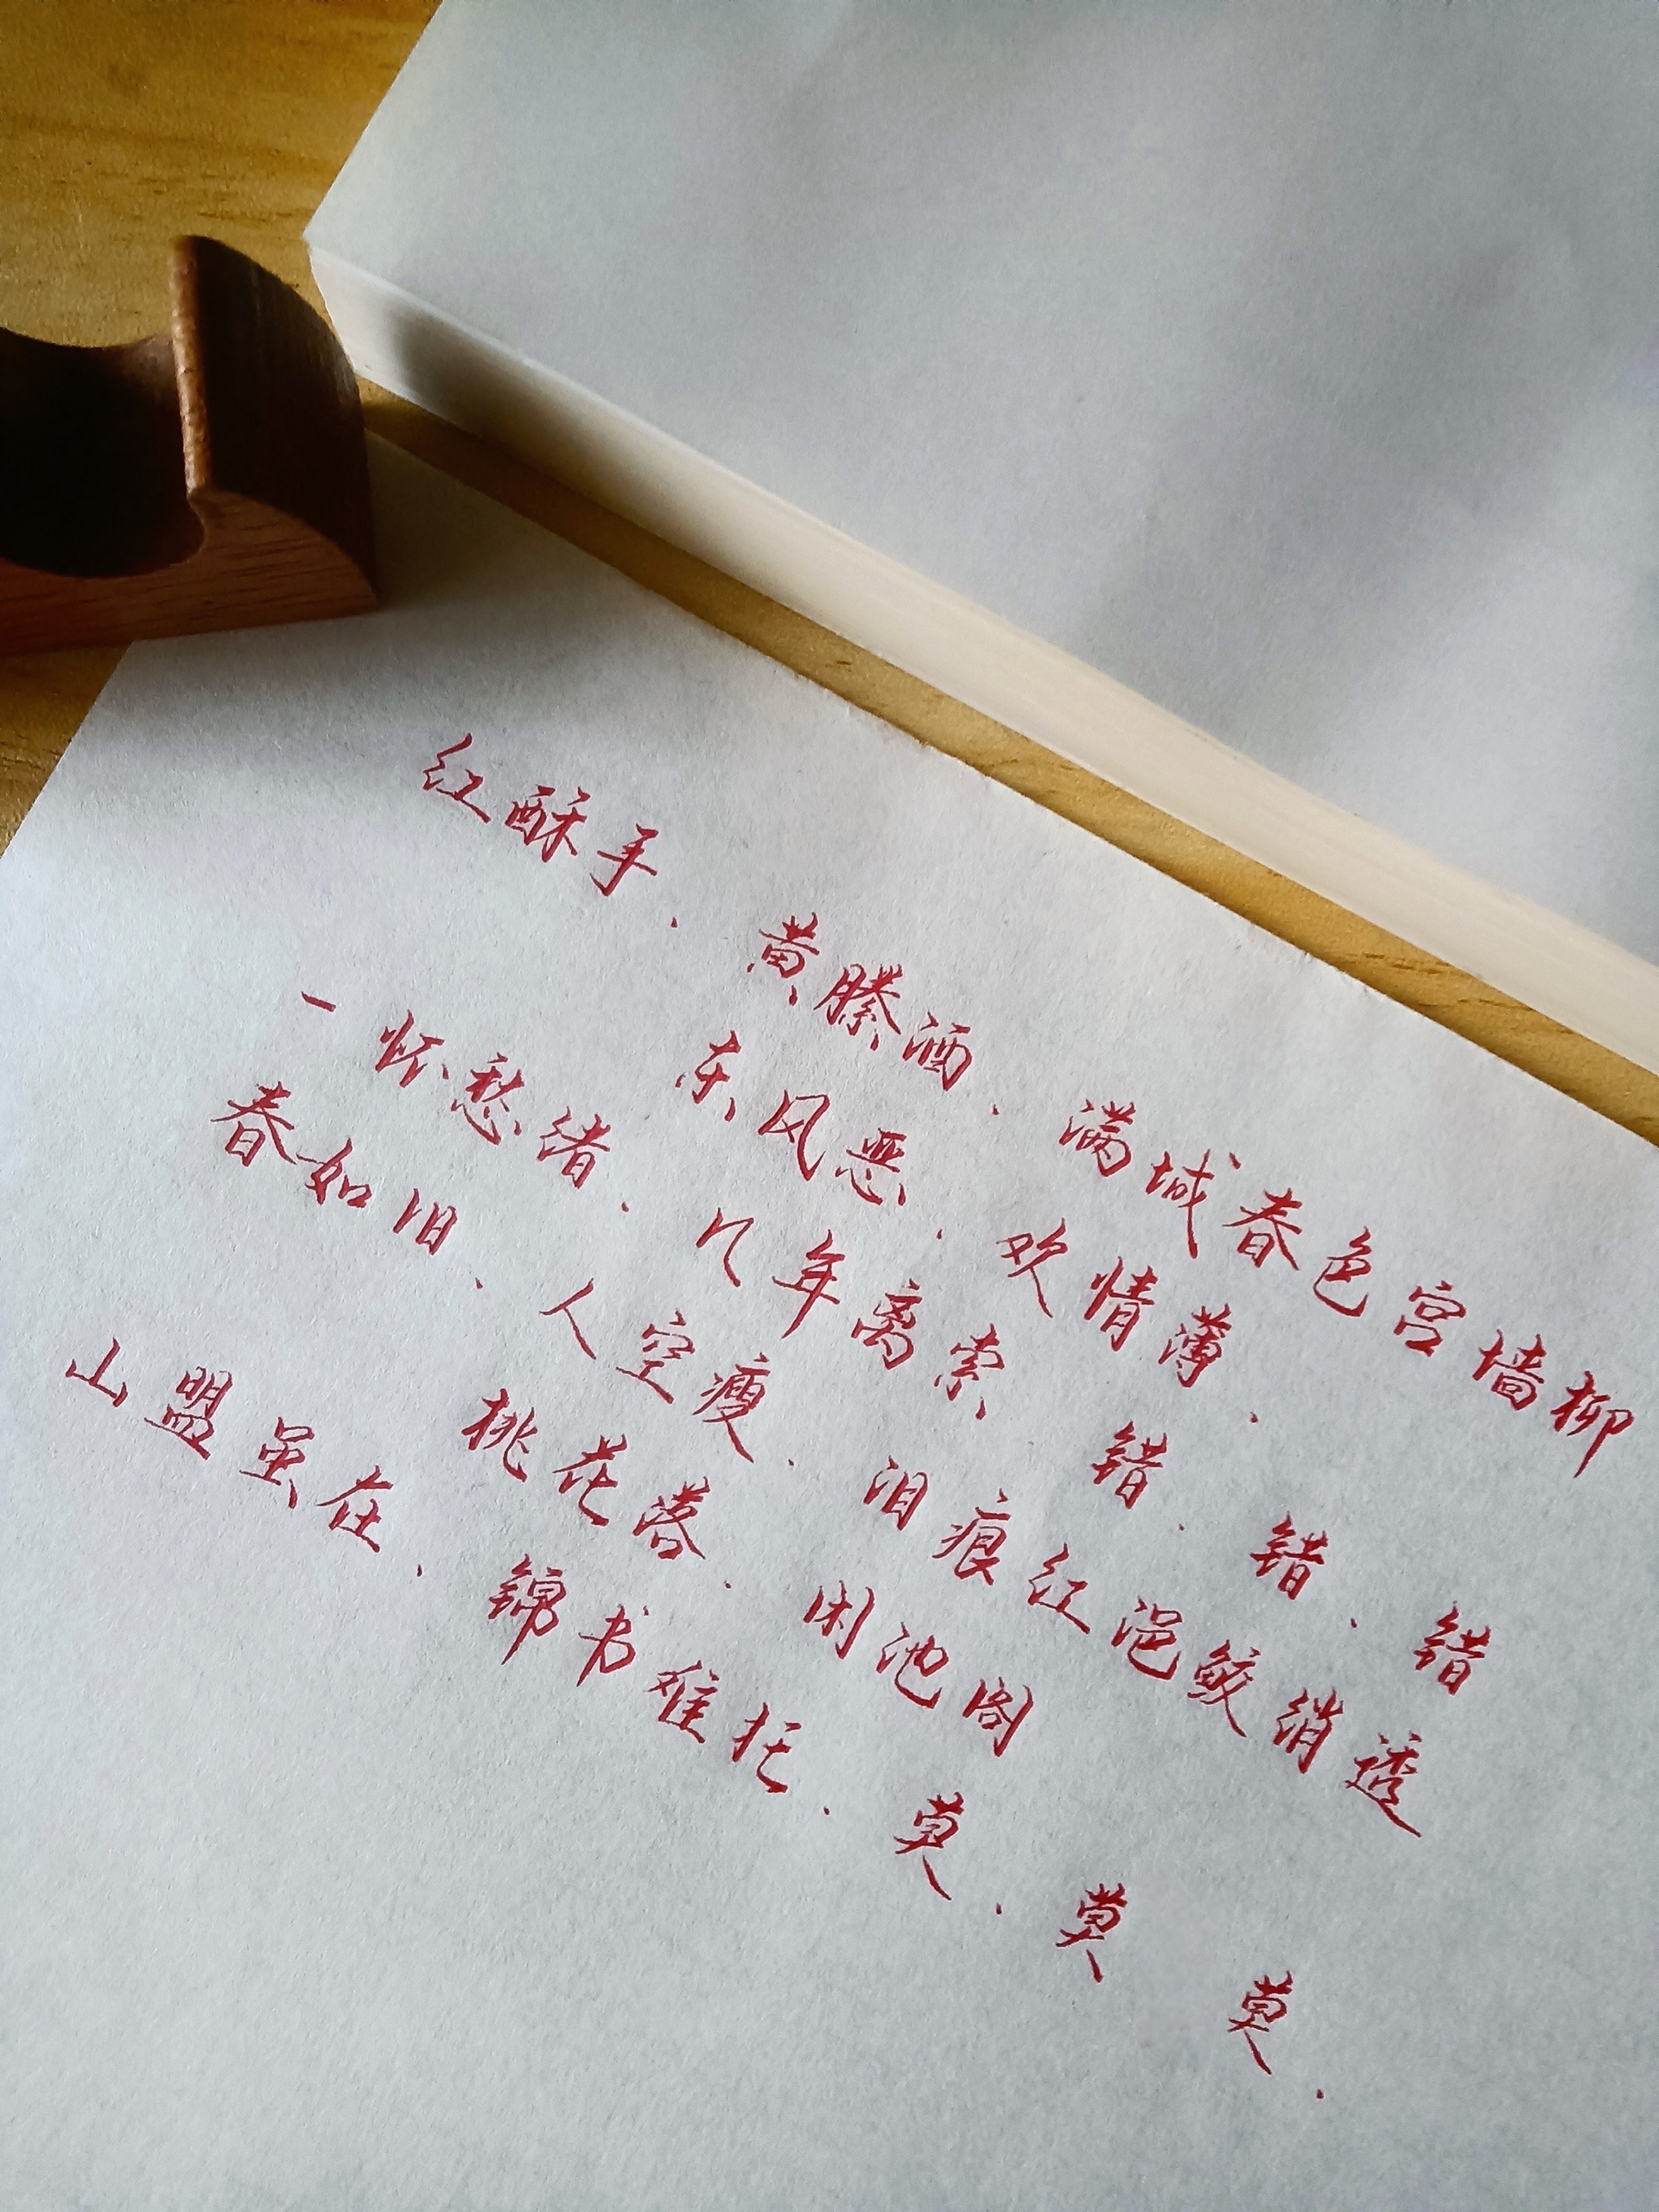 红酥手、黄縢酒、满城春色宫墙柳
东风恶、欢情薄、
一怀愁绪、几年离索 错、错、错
春如旧、人空瘦、泪痕红浥鲛绡透
桃花落、闲池阁
山盟虽在、锦书难托、莫、莫 莫、